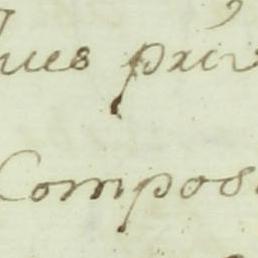 ques pri
Compos